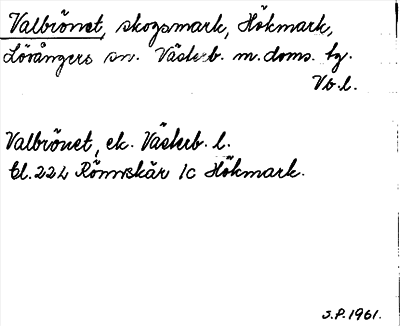 Valbrönet, skogsmark, Hökmark,
Lövångers sn. Västerb. m. doms. hg.
Vb. l.
Valbrönet, ek. Västerb. l.
bl. 224 Rönnskär 1c Hökmark.
J.P. 1961.